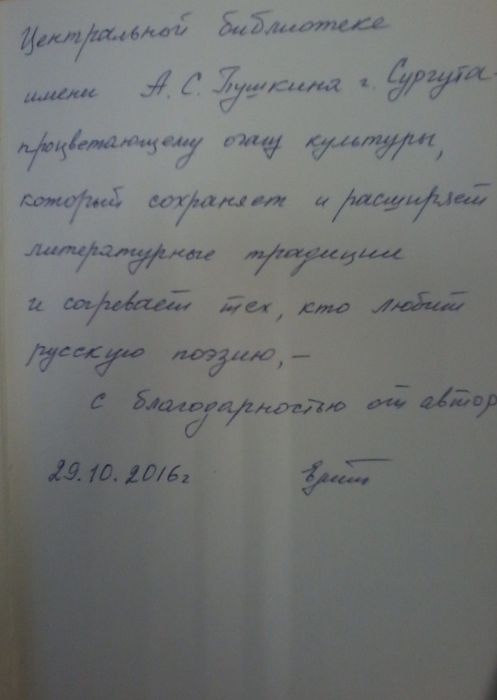 Центральной библиотеке
имени А. С. Пушкина г. Сургута-
процветающему очагу культуры,
который сохраняет и расширяет
литературные традиции
и согревает тех, кто любит
русскую поэзию, –
с благодарностью от автор
29.10.2016г